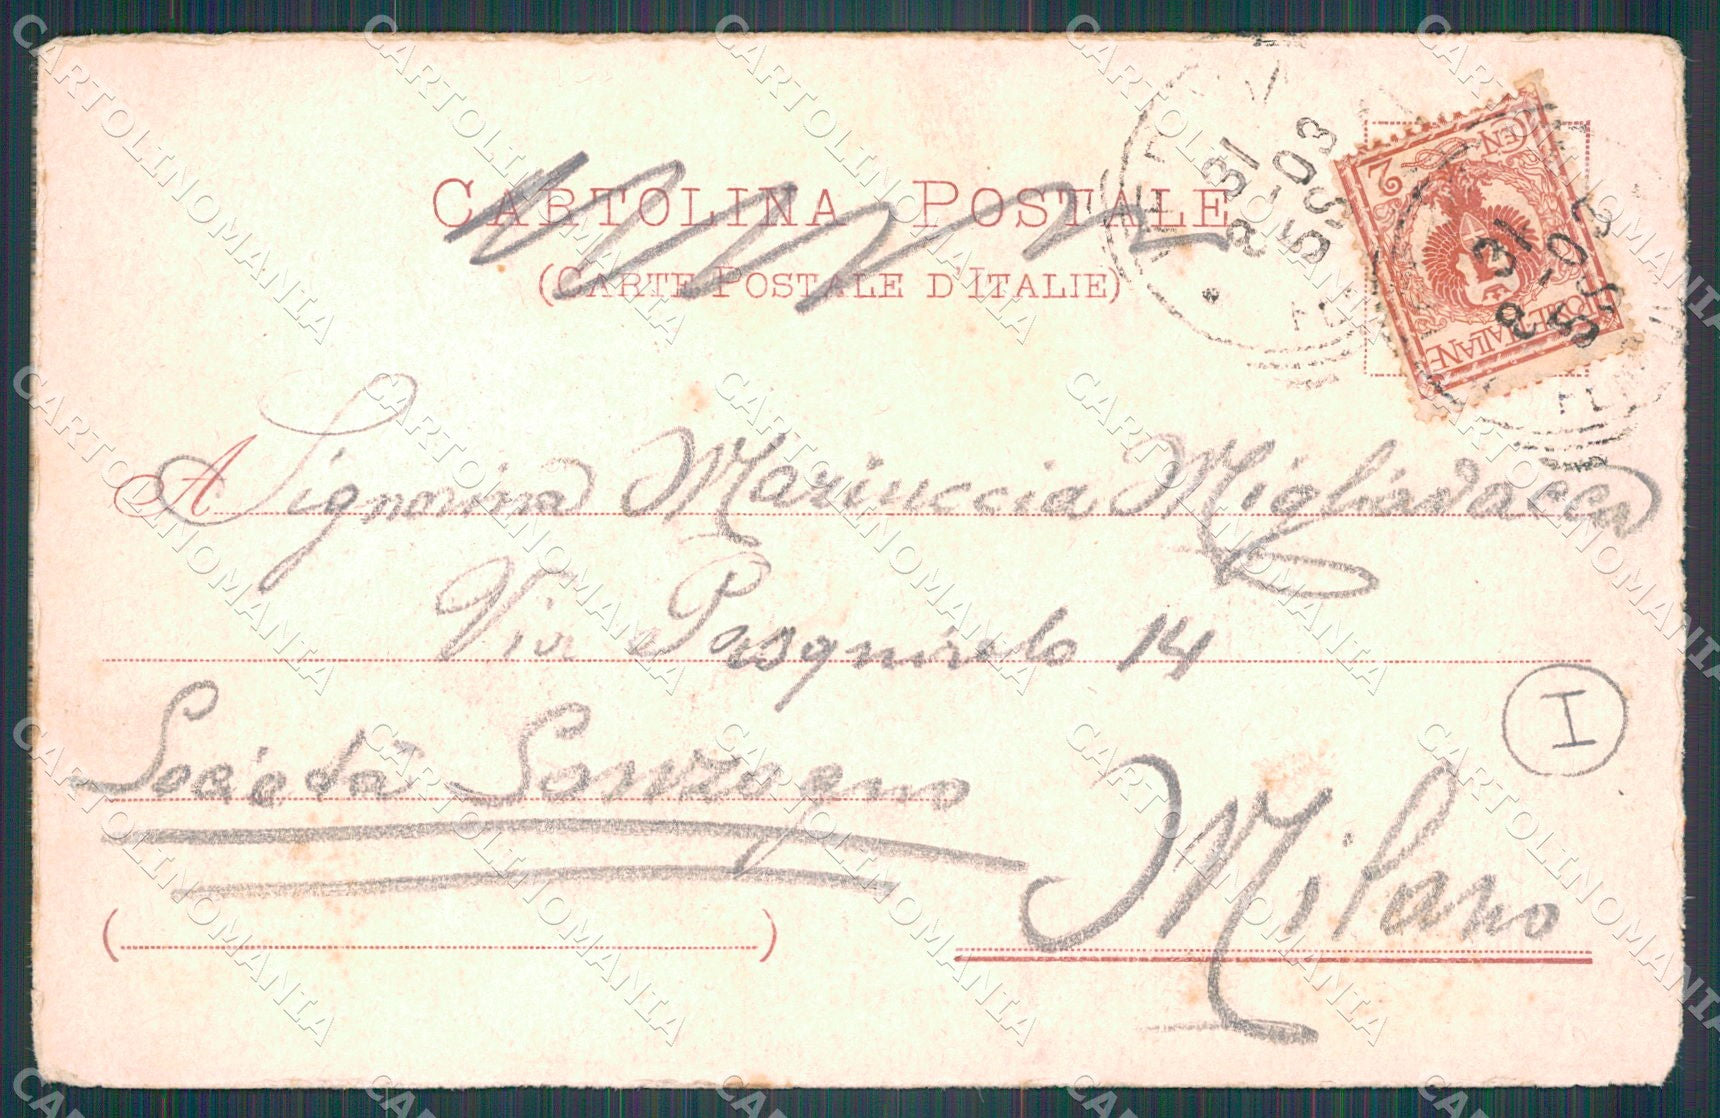 CARTOLINA POSTALE
(CARTE POSTALE D'ITALIE)
A Signorina Mariuccia Migliavacca
Via Pasquirolo 14
Società Sonzogno
Milano
I
CEN. 2
POSTE ITALIANE
31
03
31
03
CARTOLINOMANIA